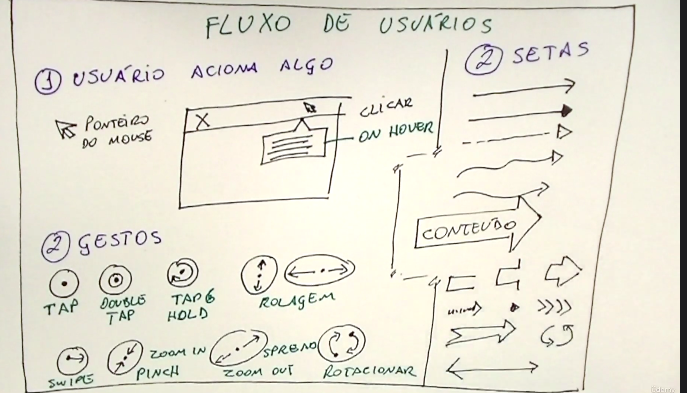 FLUXO DE USUÁRIOS
1 USUÁRIO ACIONA ALGO
PONTEIRO
DO MOUSE
X
CLICAR
ON HOVER
2 GESTOS
TAP
DOUBLE
TAP
TAP &
HOLD
ROLAGEM
SWIPE
ZOOM IN
PINCH
SPREAD
ZOOM OUT
ROTACIONAR
2 SETAS
CONTEÚDO